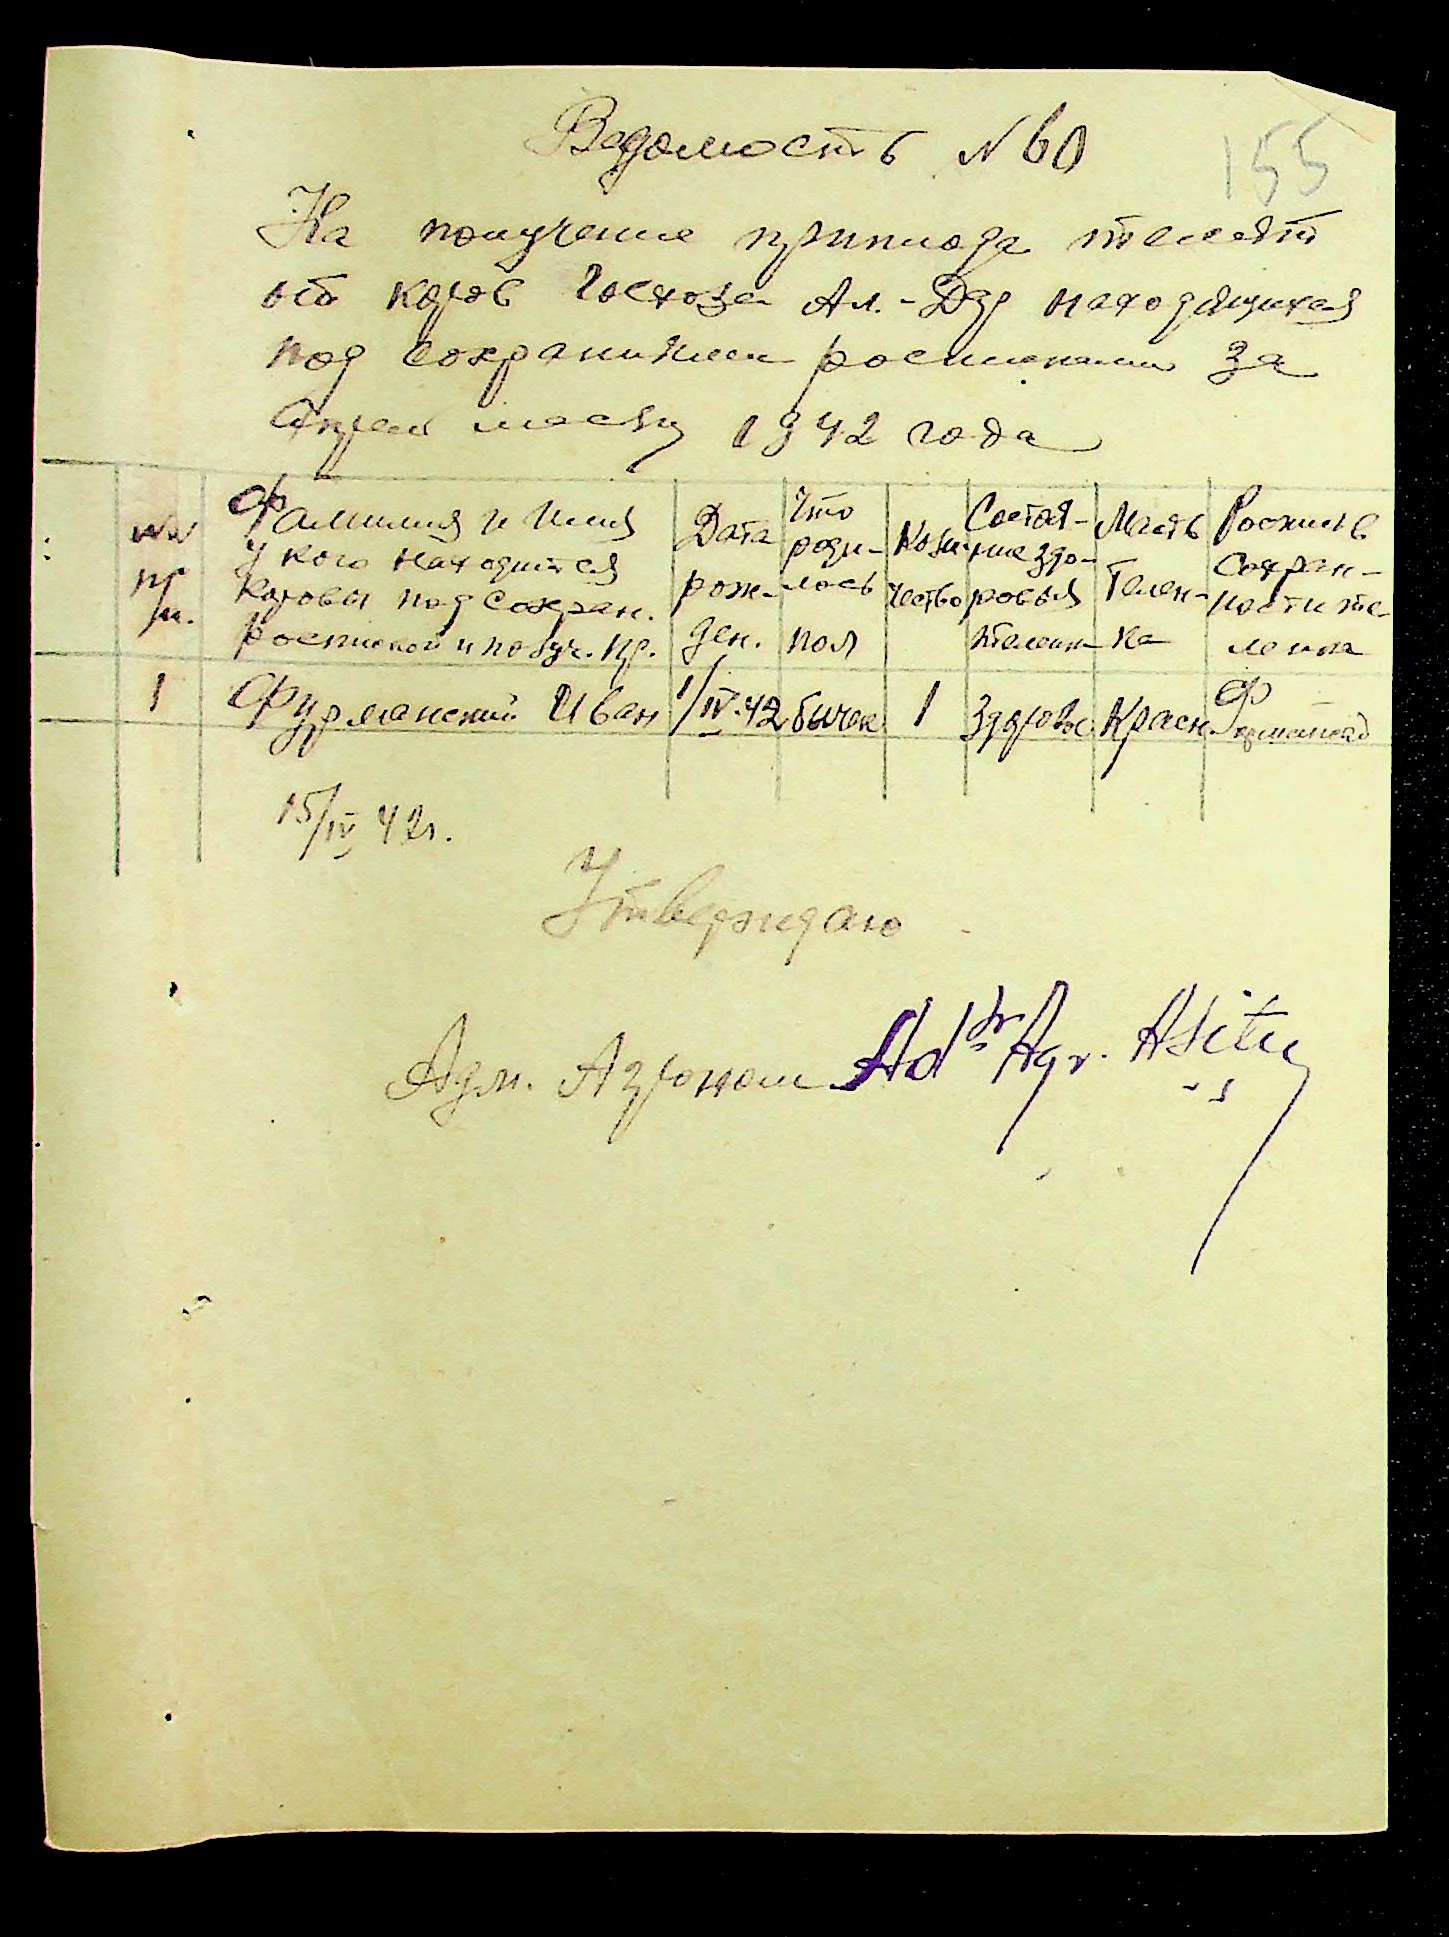 Ведомость N 60
155
На получение приплода телят
от коров Госхоза Ал.-Дар находящихся
под сохранными росписками за
Апрель месяц 1942 года
NN п/п.
Фамилия и Имя у кого находится коровы под сохран. роспиской и получ. пр.
Дата рож-ден.
Что роди-лось пол
Коли-чество
Состоя-ние здо-ровья телен-
Масть Телен-ка
Роспись в сохран-ности те-ленка
1 Фурманский Иван 1/IV-42 бычок 1 Здоровы Красн. Ф
15/IV 42г.
Утверждаю
Адм. Агроном Ad-tr Agr.